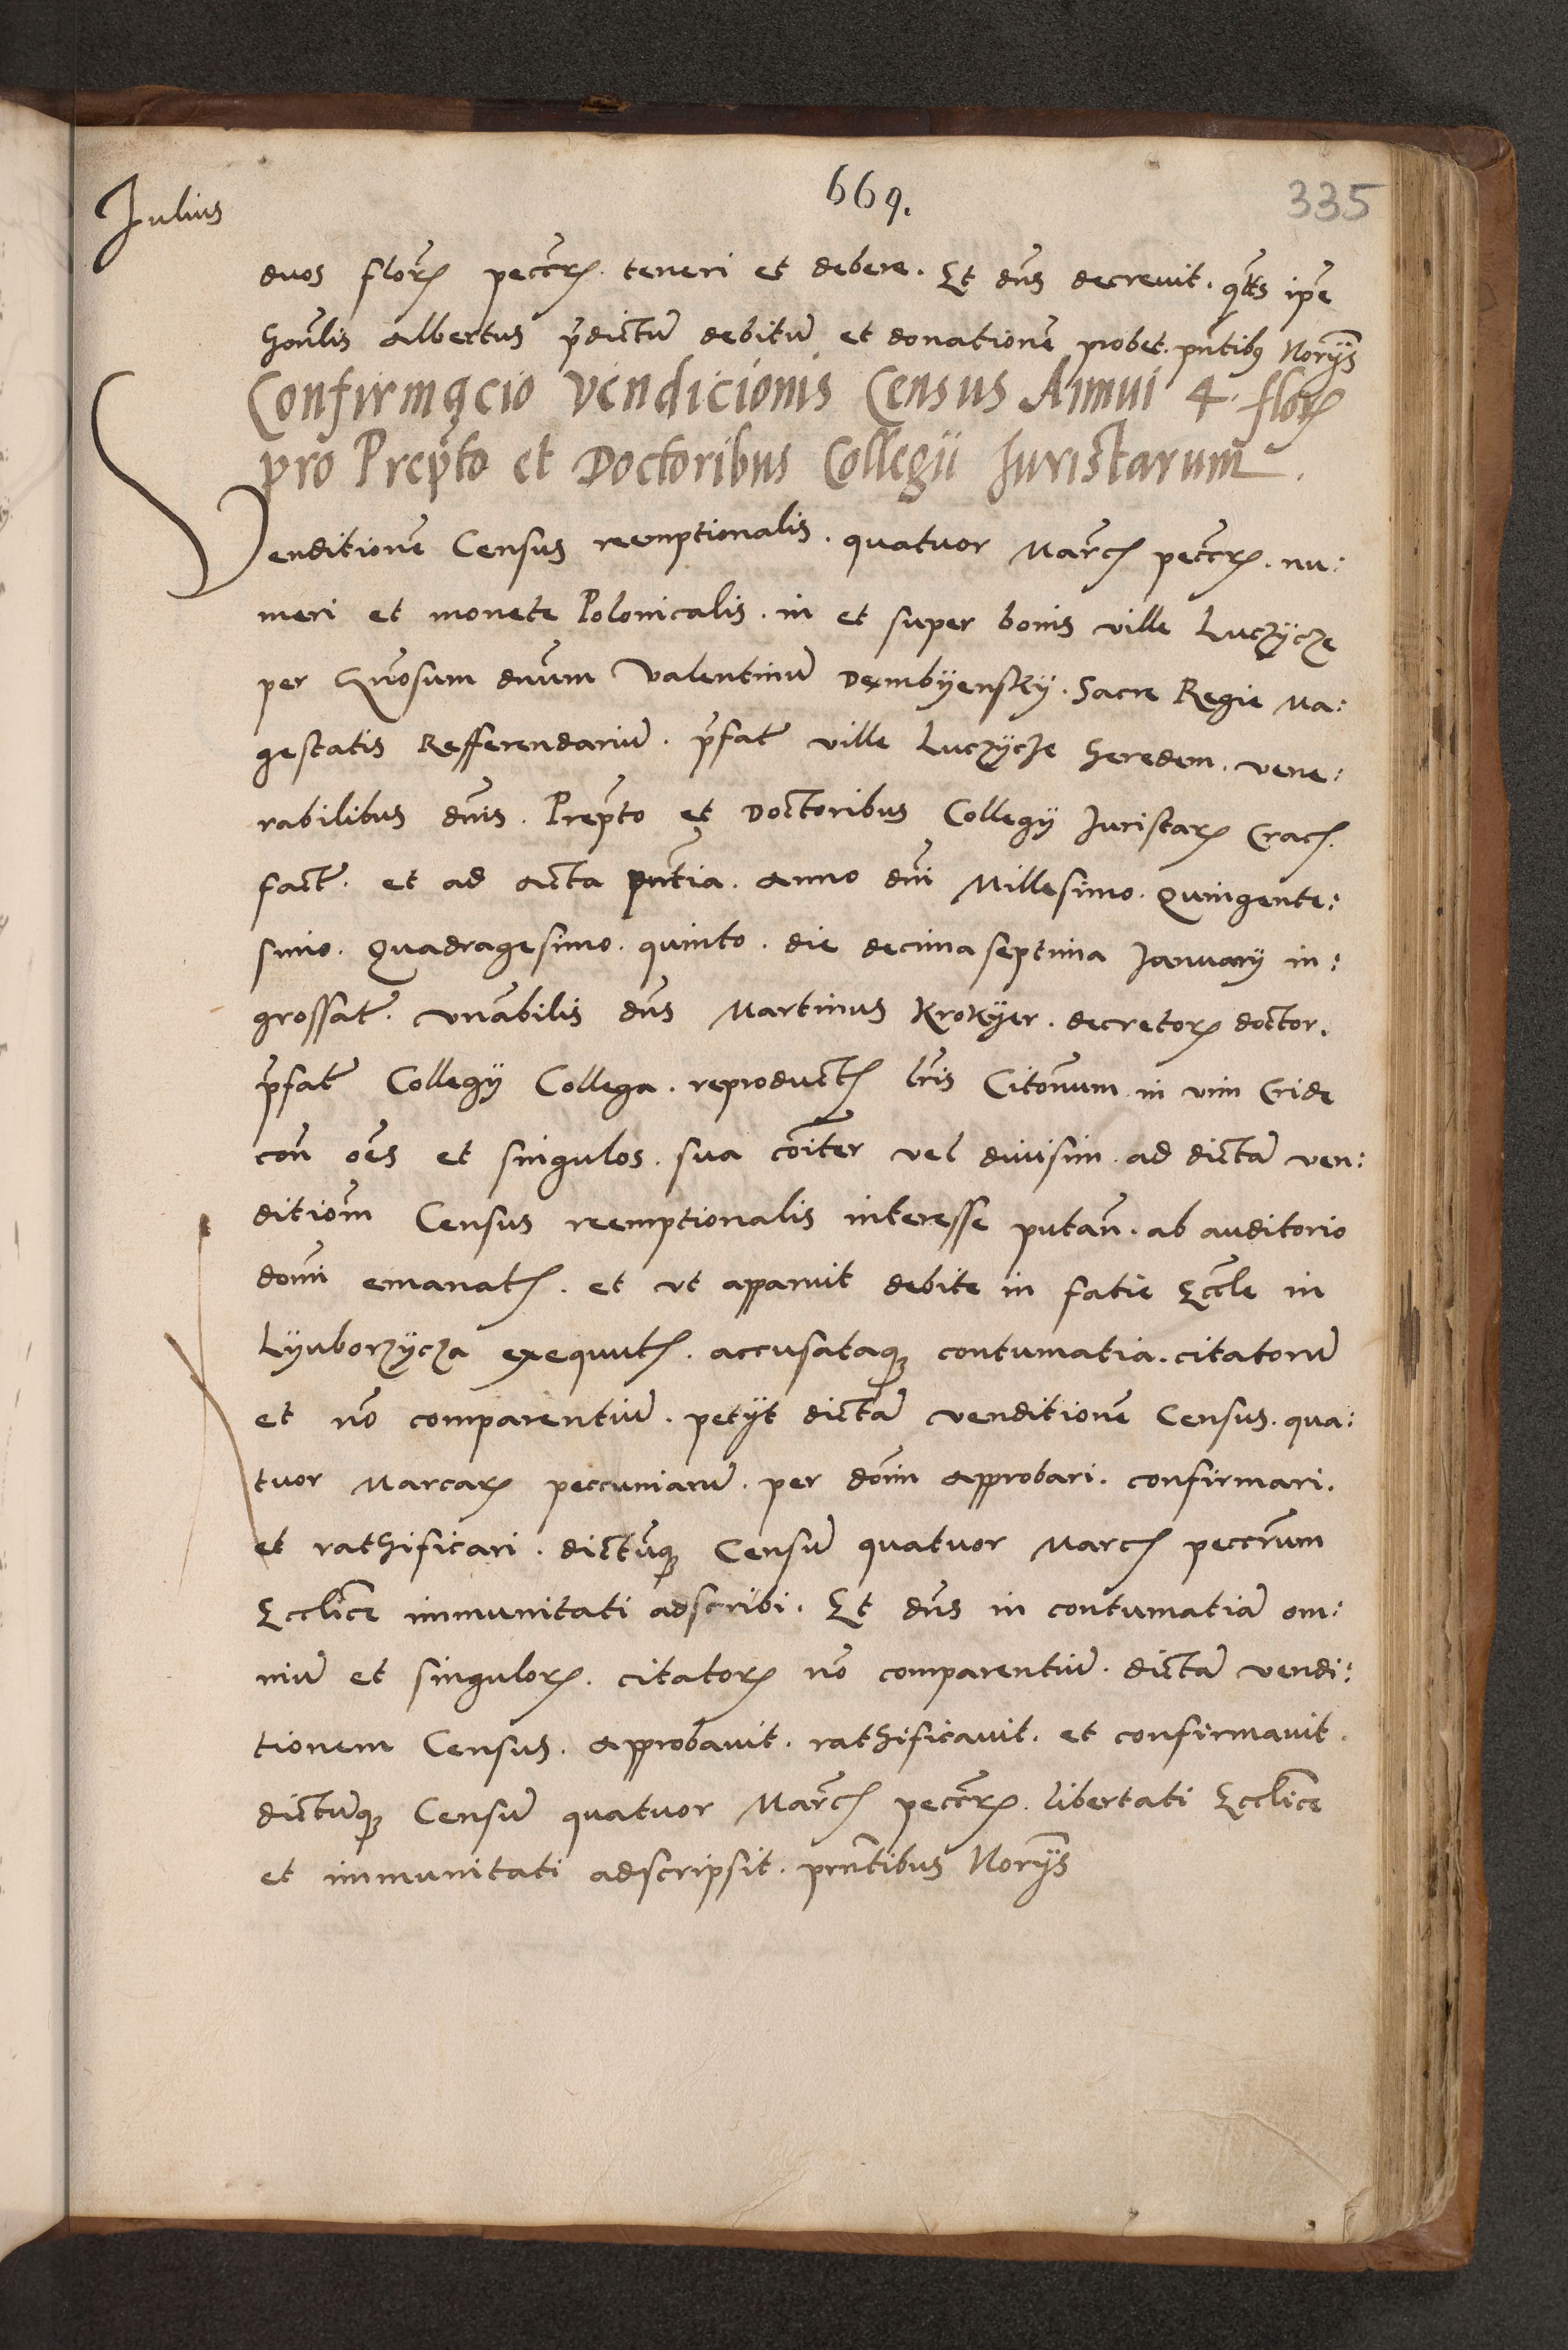 Julius
669.
335
duos flor̃ pecc̃r̃ teneri et debere. Et dñs decrevit. q̃tt̃s ip̃e
honĩlis Albertus p̃dictũ debitũ et donationẽ probet. pñtibꝯ Norÿs
Confirmacio Vendicionis Census Annui 4 flor̃
pro Prep̃to et Doctoribus Collegii Juristarum.
Venditionẽ Census reemptionalis. quatuor Mar̃cꝭ pecc̃r̃. nu:
meri et monete Polonicalis. in et super bonis ville Luczÿcze
per G̃nosum dnũm Valentinũ Dembÿenskÿ. Sacre Regie Ma:
gestatis Refferendariũ. p̃fatẽ ville Luczÿcze heredem. vene:
rabilibus dñis. Prep̃to et Doctoribus Collegÿ Juristarꝝ Cracꝭ.
factẽ. et ad Acta pñtia. Anno dñi Millesimo. Quingente:
simo. Quadragesimo. quinto. die decima septima Januarÿ in:
grossatẽ. vñabilis dñs Martinus Krokÿer. decretorꝝ doctor.
p̃fatẽ Collegÿ Collega. reproductꝭ lr̃is Citoñum in vim Cride
con̄ oẽs et singulos. sua cõiter vel divisim. ad dictã ven:
ditioñm Census reemptionalis interesse putañ. ab auditorio
domñi emanatꝭ. et vt apparuit debite in fatie Eccl̃e in
Lÿuborzÿcza exequutꝭ. accusataqꝫ contumatia. citatorũ
et nõ comparentiũ. petÿt dictã venditionẽ Census. qua:
tuor Marcarꝝ peccuniarũ. per domĩn Approbari. confirmari.
et rathificari. dictũqꝫ Censũ quatuor Marcꝭ peccr̃um
Ecclĩce immunitati adscribi. Et dñs in contumatiã om:
niũ et singulorꝝ. citatorꝝ nõ comparentiũ. dictã vendi:
tionem Census. Approbavit. rathificavit. et confirmavit.
dictũqꝫ Censũ quatuor Mar̃cꝭ pecc̃r̃. libertati Ecclĩce
et immunitati adscripsit. prñtibus Norÿs